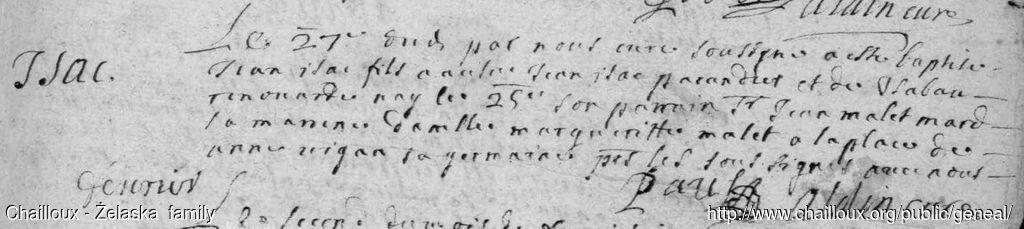 Aldin cure
Isac.
Le 27e dud par nous cure soussigne a este baptise
Jean isac fils a autre Jean isac et de Isabau
renouarde nay le 25e son parrain Sr Jean malet mard
sa marrine damlle margueritte malet a la place de
anne vigan sa germaine pnt les soussignes avec nous
Paul Aldin cure
Genries
Le second du mois de
Chailloux - Żelaska family
http://www.chailloux.org/public/geneal/